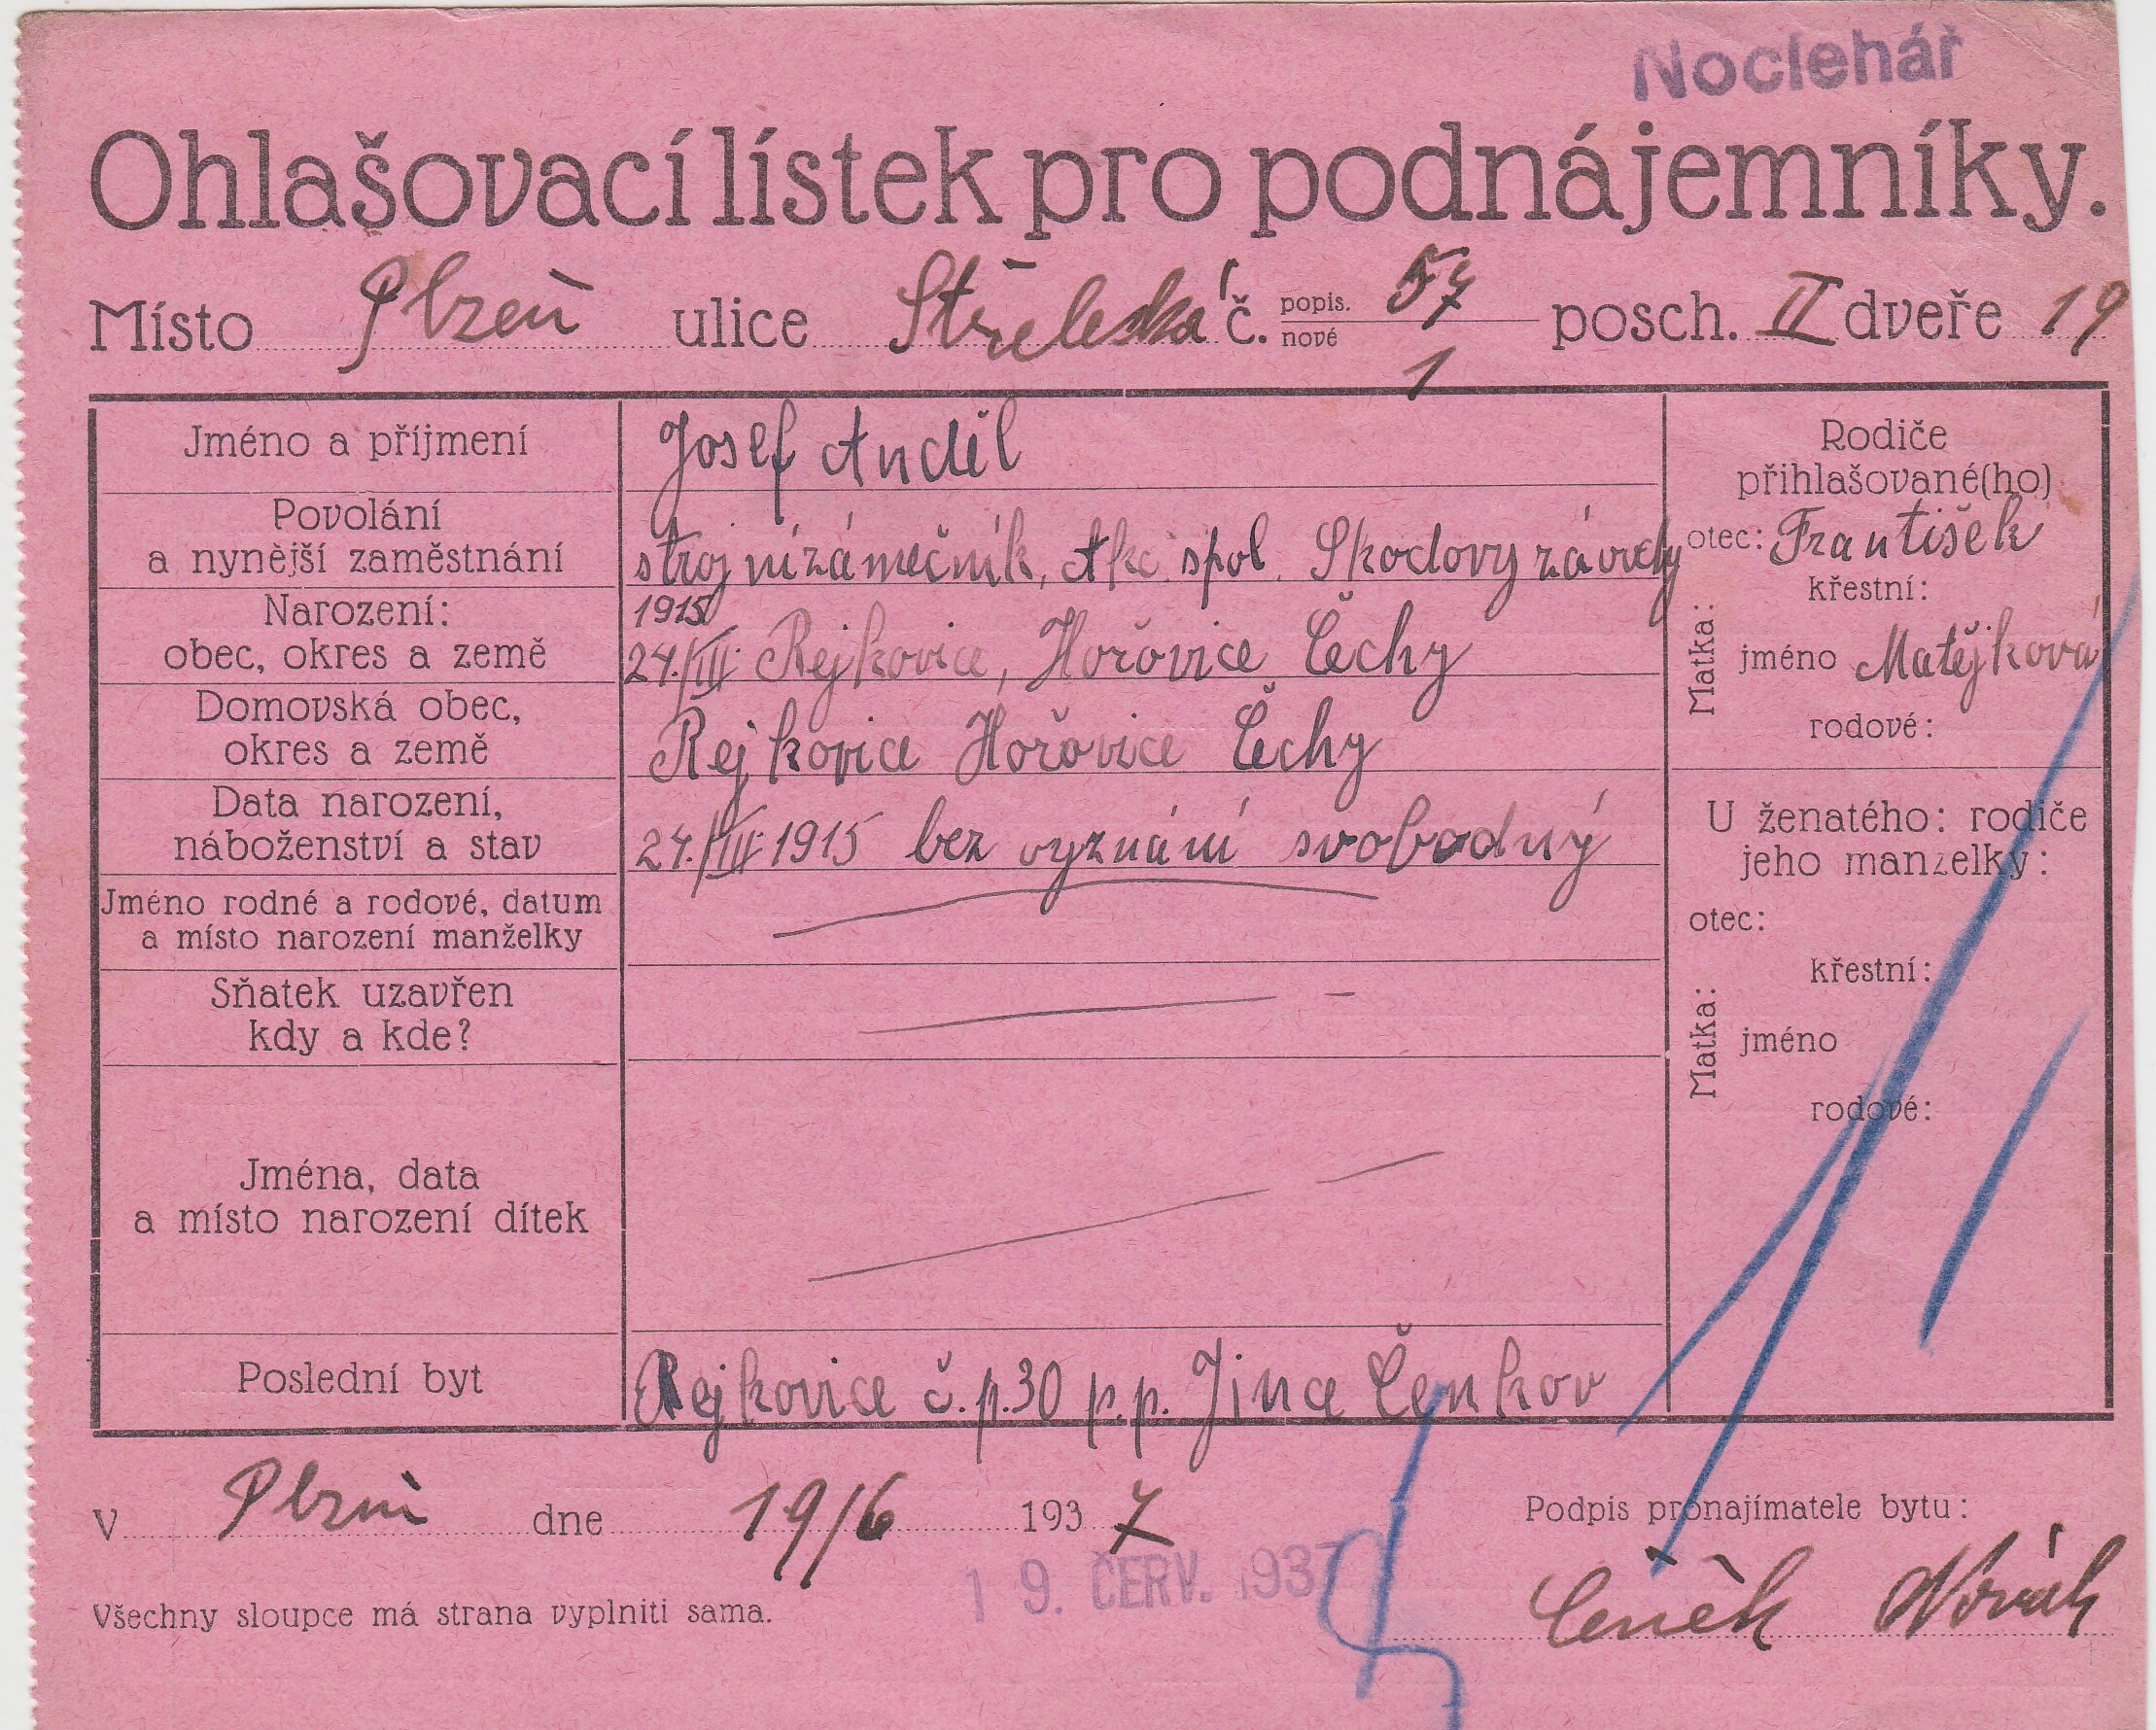 Noclehář
Ohlašovací lístek pro podnájemníky.
Místo Plzeň ulice Střelecká č. popis. 57 nové 1 posch. II dveře 19
Jméno a příjmení
Josef Anděl
Povolání
a nynější zaměstnání
strojní zámečník, Akc. spol. Skodovy závody
Narození:
obec, okres a země
1915
24./III. Rejkovice, Hořovice Čechy
Domovská obec,
okres a země
Rejkovice Hořovice Čechy
Data narození,
náboženství a stav
24./III. 1915 bez vyznání svobodný
Jméno rodné a rodové, datum
a místo narození manželky
Sňatek uzavřen
kdy a kde?
Jména, data
a místo narození dítek
Poslední byt
Rejkovice č.p.30 p.p. Jince Čenkov
Rodiče
přihlašované(ho)
otec: František
Matka:
křestní:
jméno Matějková
rodové:
U ženatého: rodiče
jeho manzelky:
otec:
Matka:
křestní:
jméno
rodové:
V Plzni dne 19/6 1937
Podpis pronajímatele bytu:
19. ČERV. 1937
Čeněk Novák
Všechny sloupce má strana vyplniti sama.